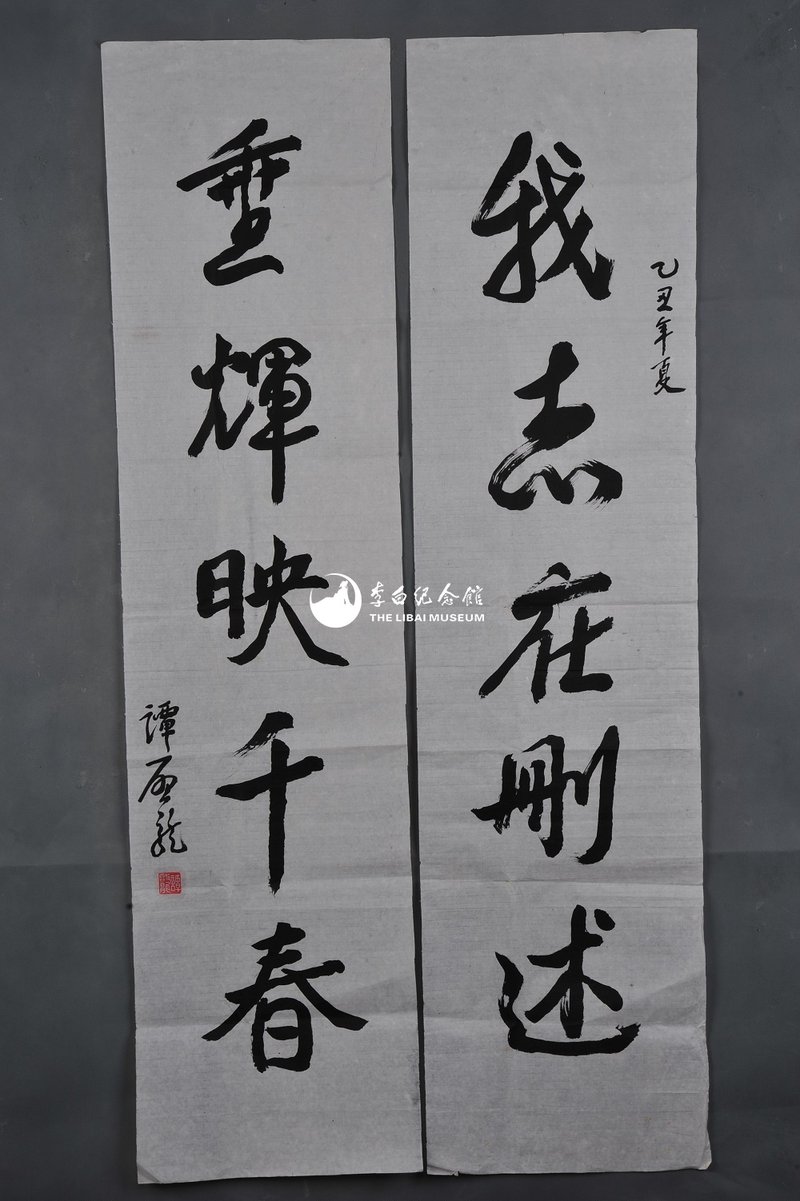 乙丑年夏
我志在删述
垂輝映千春
譚啓龍
李白纪念馆
THE LIBAI MUSEUM